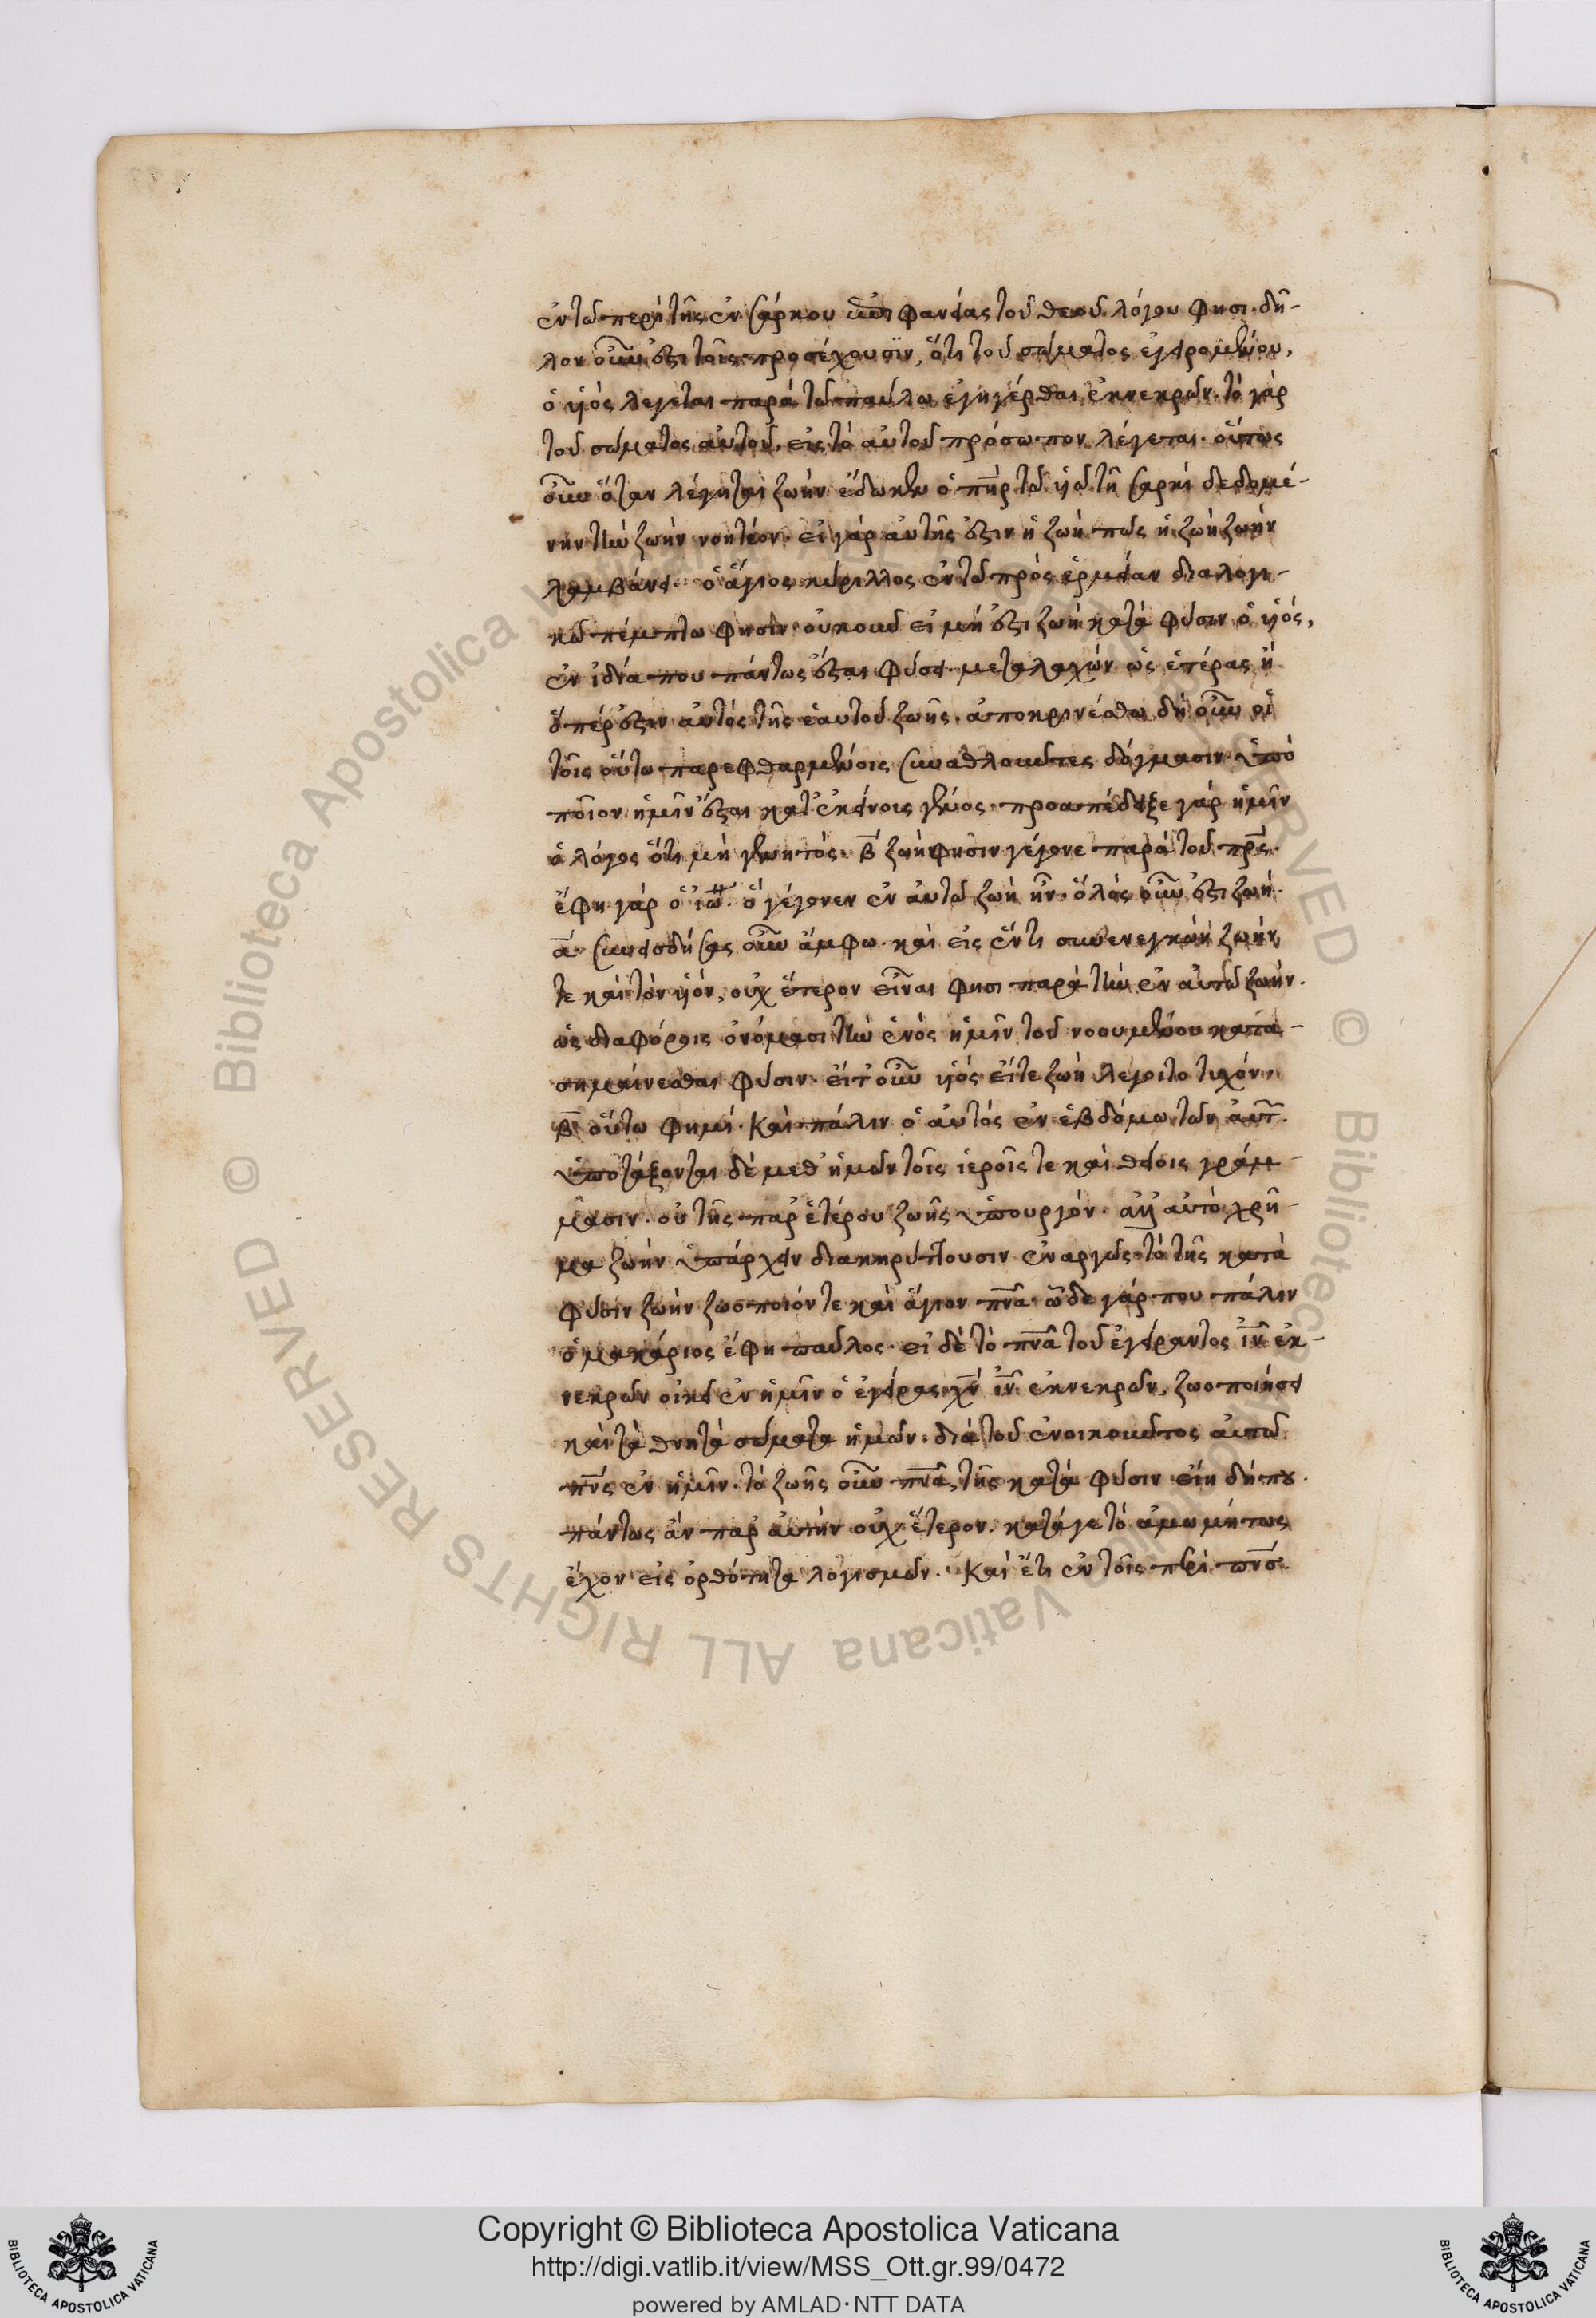 ἐν τῶ περὶ τῆς ἐνσάρκου ἐπιφανείας τοῦ θεοῦ λόγου φησι. δῆ-
λον οὖν ἐστι τοῖς προσέχουσιν, ὅτι τοῦ σώματος ἐγειρομένου,
ὁ υἱὸς λέγεται παρὰ τῶ παύλω ἐγηγέρθαι ἐκ νεκρῶν. τὰ γὰρ
τοῦ σώματος αὐτοῦ, εἰς τὸ αὐτοῦ πρόσωπον λέγεται. οὕτως
οὖν ὅταν λέγηται ζωὴν ἔδωκεν ὁ πηρ τῶ υἱῶ τῆ σαρκὶ δεδομέ-
νην τὴν ζωὴν νοητέον. εἰ γὰρ αὐτῆς ἐστιν ἡ ζωὴ πῶς ἡ ζωὴ ζωὴν
λαμβάνει. ὁ ἅγιος κύριλλος ἐν τῶ πρὸς ἑρμείαν διαλογι-
κῶ πέμπτω φησίν. οὐκοῦν εἰ μή ἐστι ζωὴ κατὰ φύσιν ὁ υἱός,
ἐν ἰδία που πάντως ἔσται φύσει. μεταλαχὼν ὡς ἑτέρας ἢ
ὅπέρ ἐστιν αὐτὸς τῆς ἑαυτοῦ ζωῆς. ἀποκρινέσθω δὴ οὖν οἱ
τοῖς οὕτω παρεφθαρμένοις συναθλοῦντες δόγμασιν. ὑπὸ
ποῖον ἡμῖν ἔσται κατ' ἐκείνοις γένος. προαπέδειξε γὰρ ἡμῖν
ὁ λόγος ὅτι μὴ γενητός. β ζωὴ φησὶν γέγονε παρὰ τοῦ πρς.
ἔφη γὰρ ὁ ἰω. ὃ γέγονεν ἐν αὐτῶ ζωὴ ἦν. ὅλος οὖν ἐστι ζωή.
α συνεισδήσας οὖν ἄμφω. καὶ εἰς ἕν τι συνενεγκὼν ζωήν
τε καὶ τὸν υἱόν, οὐχ ἕτερον εἶναι φησι παρὰ τὴν ἐν αὐτῶ ζωήν.
ὡς διαφόροις ὀνόμασι τὴν ἑνὸς ἡμῖν τοῦ νοουμένου κατα-
σημαίνεσθαι φύσιν. εἴτ' οὖν υἱὸς εἴτε ζωὴ λέγοιτο τυχόν.
β οὕτω φημί. Καὶ πάλιν ὁ αὐτὸς ἐν ἑβδόμω τῶν αὐτ.
ὑποτάξονται δὲ μεθ' ἡμῶν τοῖς ἱεροῖς τε καὶ θείοις γράμ-
μασιν. οὐ τῆς παρ' ἑτέρου ζωῆς ὑπουργόν. ἀλλ' αὐτὸ χρῆ-
μα ζωὴν ὑπάρχειν διακηρύττουσιν ἐναργῶς τὸ τῆς κατὰ
φύσιν ζωὴν ζωοποιόν τε καὶ ἅγιον πνα. ὧδε γάρ που πάλιν
ὁ μακάριος ἔφη παῦλος. εἰ δὲ τὸ πνα τοῦ ἐγείραντος ιν ἐκ-
νεκρῶν οἰκεῖ ἐν ἡμῖν ὁ ἐγείρας χν ιν ἐκ νεκρῶν, ζωοποιήσει
καὶ τὰ θνητὰ σώματα ἡμῶν. διὰ τοῦ ἐνοικοῦντος αὐτοῦ
πνς ἐν ἡμῖν. τὸ ζωῆς οὖν πνα, τῆς κατὰ φύσιν εἴη δή που.
πάντως ἂν παρ' αὐτὴν οὐχ ἕτερον. κατά γε τὸ ἀμωμήτως
ἔχον εἰς ὀρθότητα λογισμῶν. Καὶ ἔτι ἐν τοῖς περὶ
Copyright © Biblioteca Apostolica Vaticana
http://digi.vatlib.it/view/MSS_Ott.gr.99/0472
powered by AMLAD·NTT DATA
BIBLIOTECA APOSTOLICA VATICANA
BIBLIOTECA APOSTOLICA VATICANA
© Biblioteca Apostolica Vaticana ALL RIGHTS RESERVED